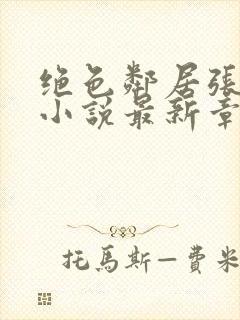 绝色鄰居張
小說最新章
托馬斯—費米